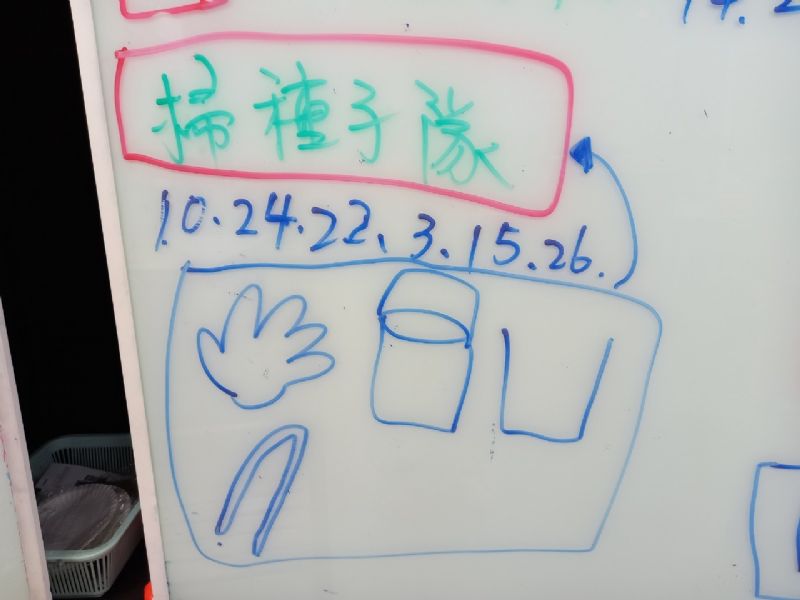 掃種子隊
10.24.22、3.15.26.